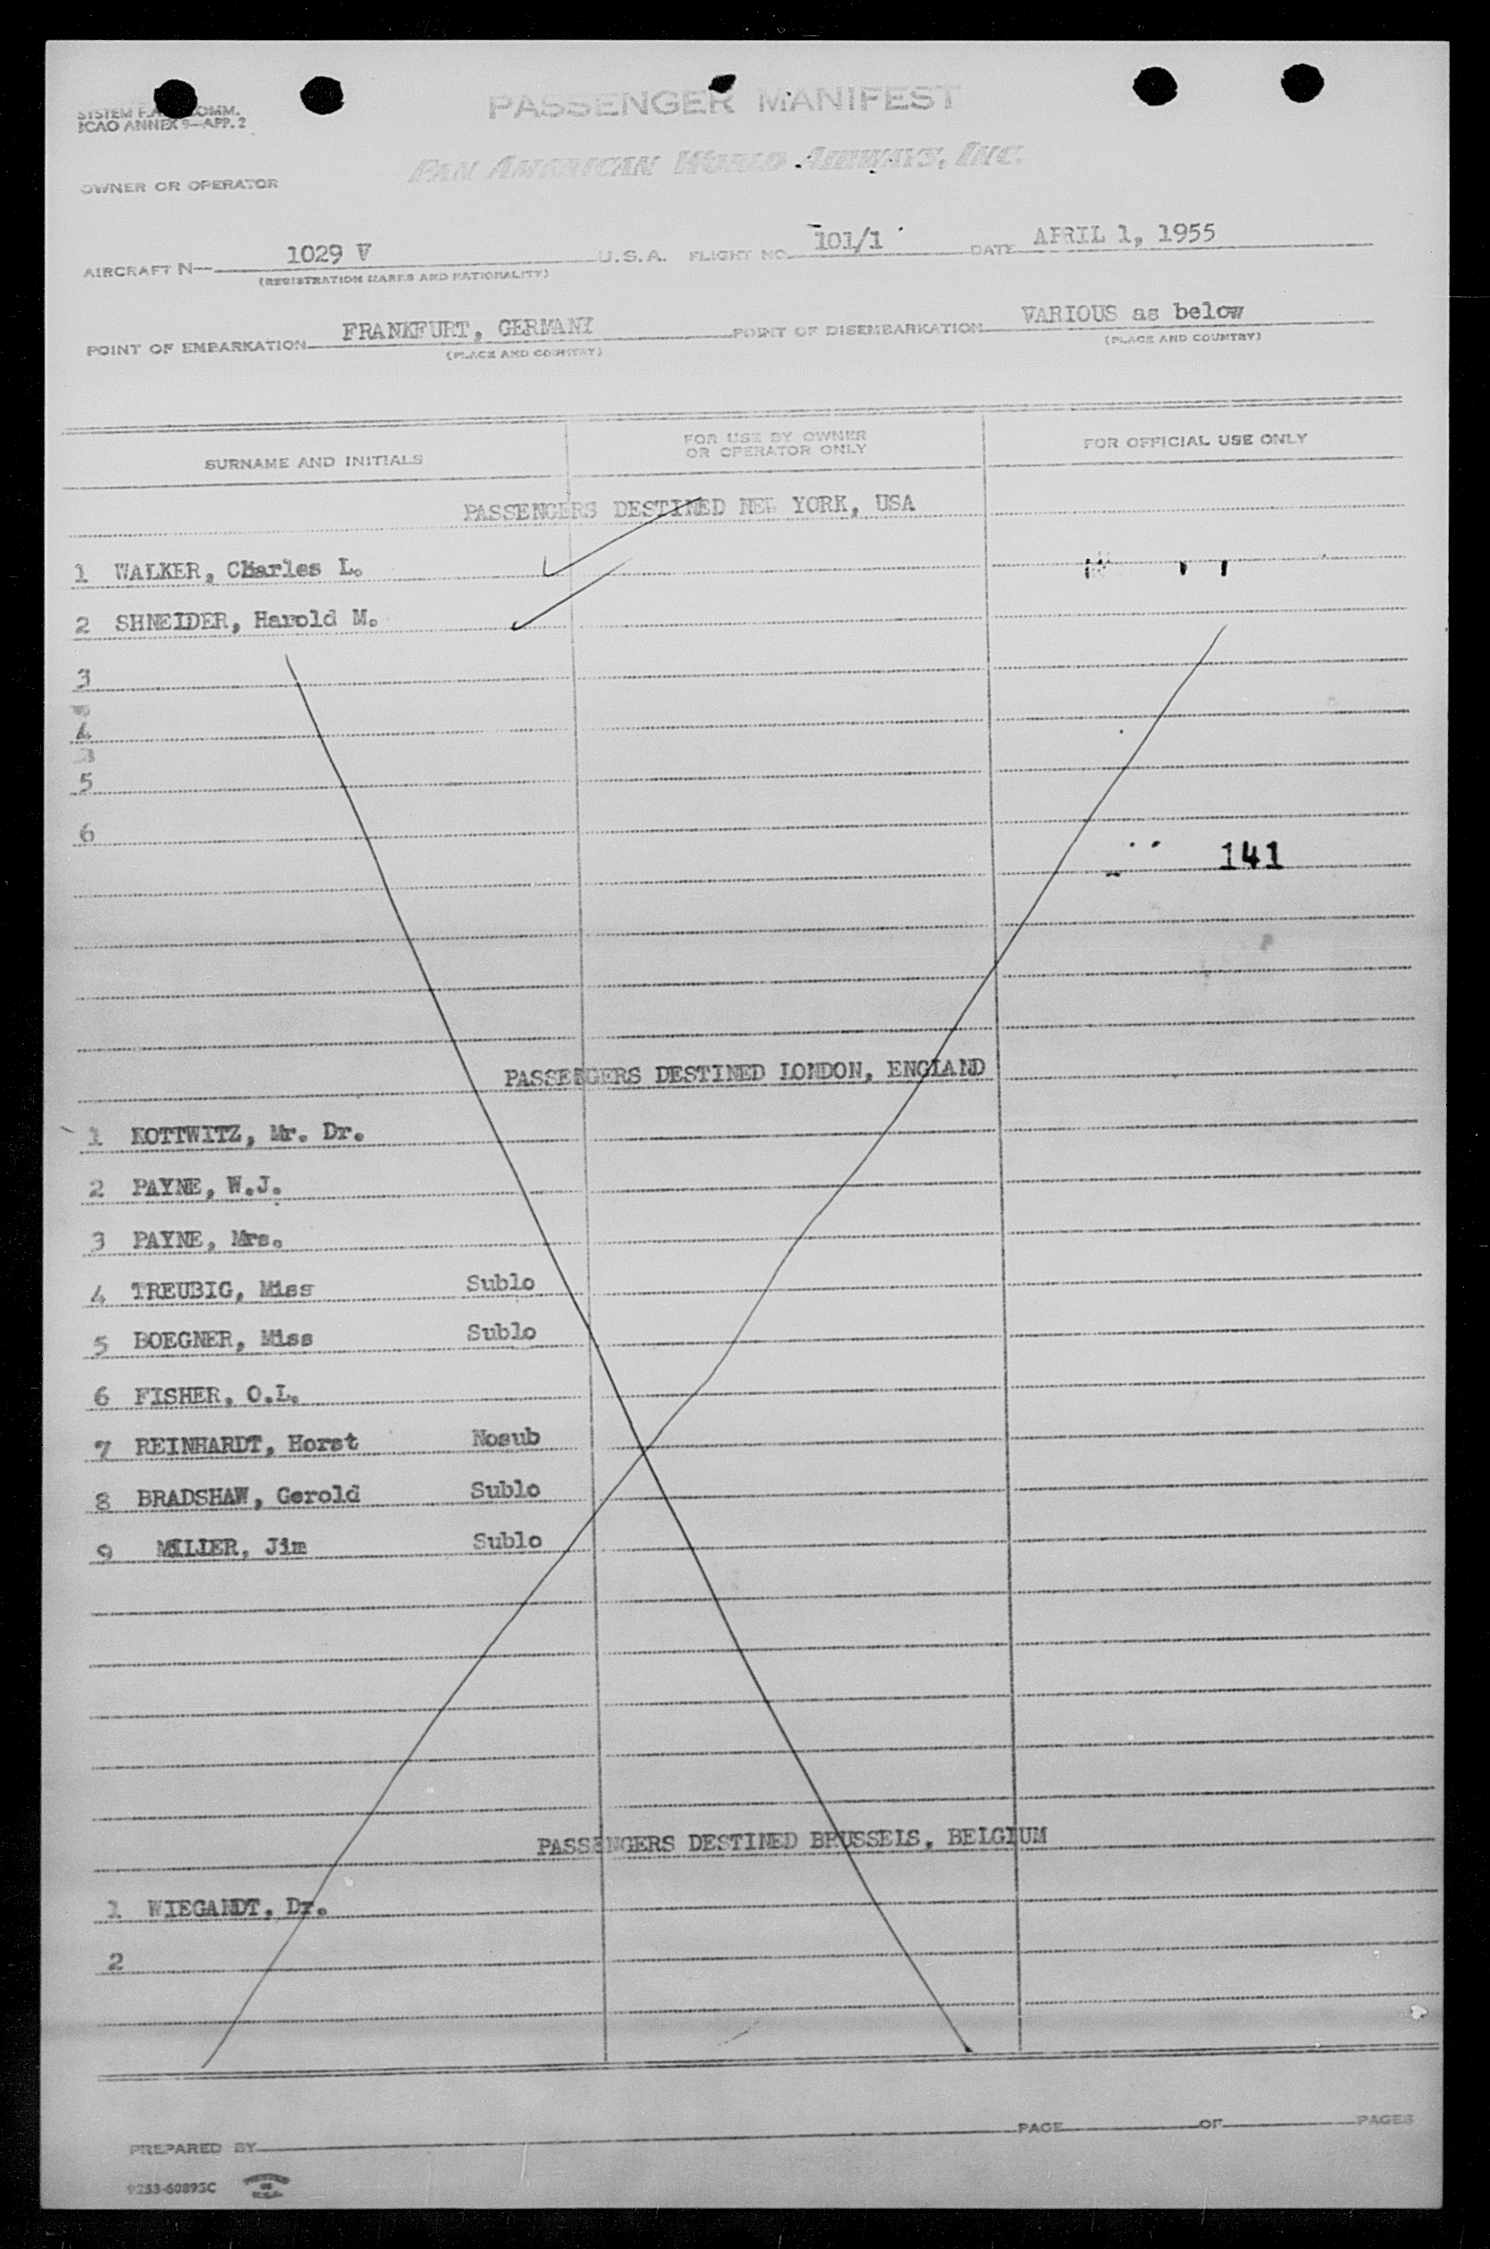 PASSENGER MANIFEST
SYSTEM COMM.
ICAO ANNEX 9—APP. 2
PAN AMERICAN WORLD AIRWAYS, INC.
OWNER OR OPERATOR
AIRCRAFT N— 1029 V U.S.A. FLIGHT NO. 101/1 DATE APRIL 1, 1955
(REGISTRATION MARKS AND NATIONALITY)
POINT OF EMBARKATION FRANKFURT, GERMANY POINT OF DISEMBARKATION VARIOUS as below
(PLACE AND COUNTRY) (PLACE AND COUNTRY)
SURNAME AND INITIALS FOR USE BY OWNER OR OPERATOR ONLY FOR OFFICIAL USE ONLY
PASSENGERS DESTINED NEW YORK, USA
1 WALKER, Charles L.
2 SHNEIDER, Harold M.
3
4
5
6
141
PASSENGERS DESTINED LONDON, ENGLAND
1 KOTTWITZ, Mr. Dr.
2 PAYNE, W.J.
3 PAYNE, Mrs.
4 TREUBIG, Miss Sublo
5 BOEGNER, Miss Sublo
6 FISHER, O.L.
7 REINHARDT, Horst Nosub
8 BRADSHAW, Gerold Sublo
9 MILLER, Jim Sublo
PASSENGERS DESTINED BRUSSELS, BELGIUM
1 WIEGANDT, Dr.
2
PREPARED BY PAGE OF PAGES
9253-60895C PRINTED IN U.S.A.